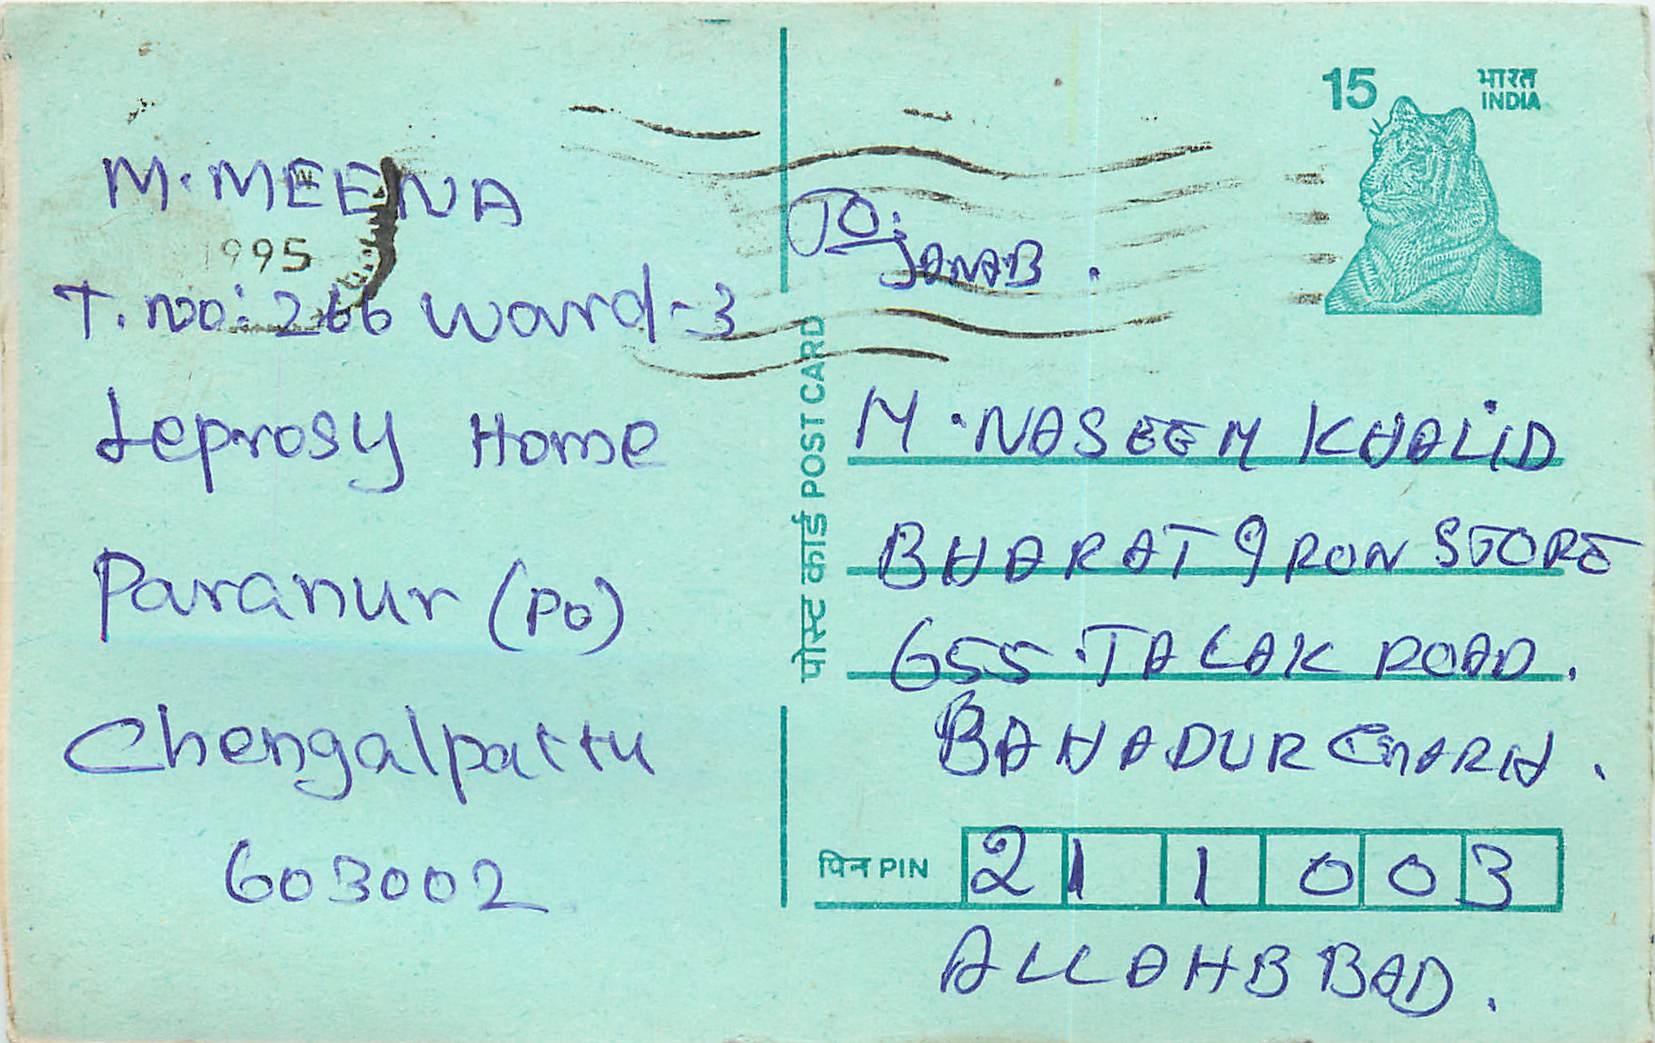 M. MEENA
1995
T. no: 266 Ward-3
Leprosy Home
Paranur (Po)
Chengalpattu
603002
15
भारत
INDIA
To:
JANAB.
पोस्ट कार्ड POST CARD
M. NASEEM KHALID
BHARAT IRON STORE
655. TALAK ROAD.
BAHADUR GNARH.
पिन PIN
211003
ALLAHBBAD.